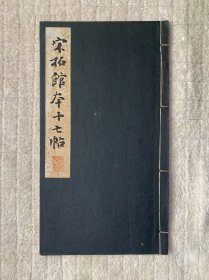 宋拓館本十七帖